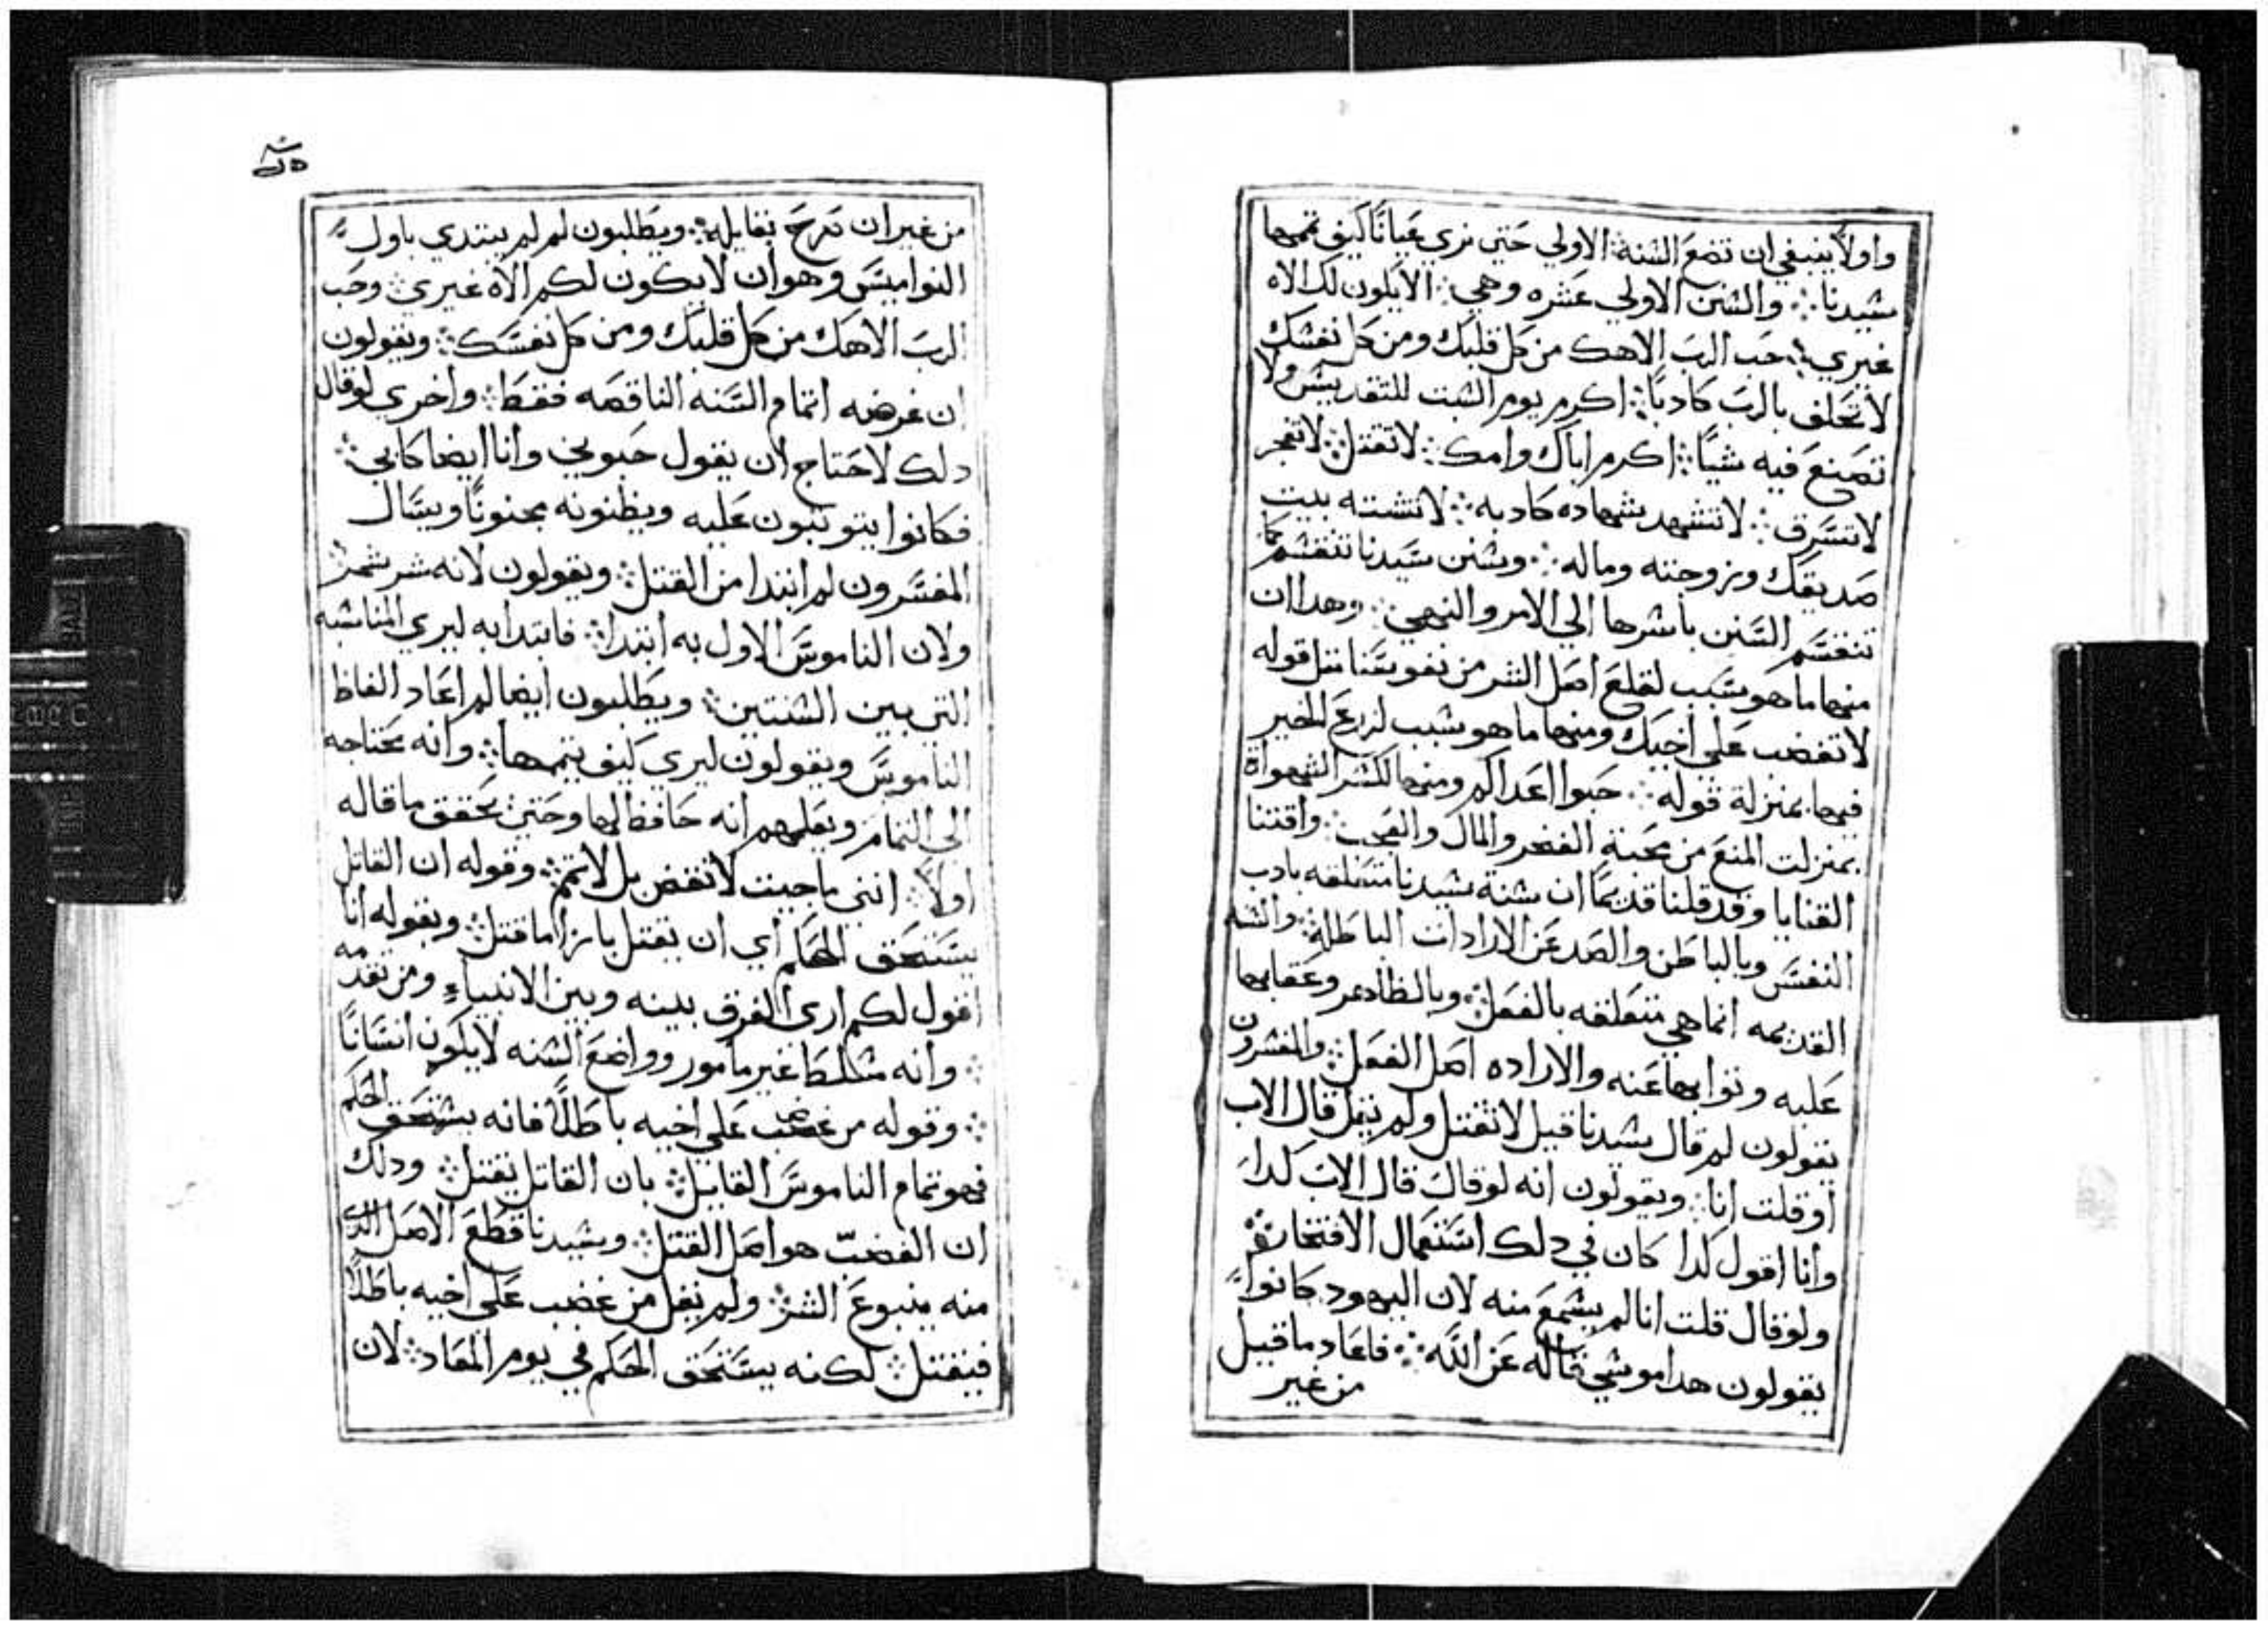 واولاً ينبغي ان تضع السنة الاولي حتي نري عيانًا كيف تممها
سيدنا ܀ والسنن الاولي عشره وهي ܀ الا يكون لك الاه
غيري ܀ حب الرب الاهك من كل قلبك ومن كل نفسك
لا تحلف بالرب كادبًا ܀ اكرم يوم السبت للتقديس ولا
تصنع فيه شيًا ܀ اكرم اباك وامك ܀ لا تقتل ܀ لا تفجر
لا تسرق ܀ لا تشهد شهاده كادبه ܀ لا تشته بيت
صديقك وزوجته وماله ܀ وسنن سيدنا تنقسم كما
تنقسم السنن باسرها الي الامر والنهي ܀ وهدا ان
منها ما هو سبب لقلع اصل الشر من نفوسنا مثل قوله
لا تغضب علي اخيك ومنها ما هو سبب لزرع الخير
فيها بمنزلة قوله ܀ حبوا اعداكم ومنها لكسر الشهواة
بمنزلت المنع من محبة الفخر والمال والعجب ܀ واقتنا
القنايا وقد قلنا قديمًا ان سنة سيدنا متعلقه بادب
النفس وبالباطن والصد عن الارادات الباطلة ܀ والسنه
القديمه انما هي متعلقه بالفعل ܀ وبالظاهر وعقابها
عليه وثوابها عنه والاراده اصل الفعل ܀ والمفسرون
يقولون لم قال سيدنا قيل لا تقتل ولم يقل قال الاب
او قلت انا ܀ ويقولون انه لو قال قال الاب كدا
وانا اقول كدا كان في دلك استعمال الافتخار ܀
ولو قال قلت انا لم يسمع منه لان اليهود كانوا
يقولون هدا موسي قاله عن الله ܀ فاعاد ما قيل
من غير
من غير ان تصرح بقايله ܀ ويطلبون لم لم يبتدي باول
النواميس وهو ان لا يكون لكم الاه غيري ܀ وحب
الرب الاهك من كل قلبك ومن كل نفسك ܀ ويقولون
ان غرضه اتمام السنه الناقصه فقط ܀ واخري لو قال
دلك لاحتاج ان يقول حبوني وانا ايضا كابي ܀
فكانوا يتوثبون عليه ويظنونه مجنونًا ويسال
المفسرون لم ابتدا من القتل ܀ ويقولون لانه شر
ولان الناموس الاول به ابتدا ܀ فابتدا به ليري المناسبه
التي بين السنتين ܀ ويطلبون ايضا لم اعاد الفاظ
الناموس ويقولون ليري كيف يتممها ܀ وانه محتاجه
الي التمام ويعلمهم انه حافظ لها وحتي يحقق ما قاله
اولاً ܀ انني ما جيت لانقض بل لاتمم ܀ وقوله ان القاتل
يستحق الحكم اي ان يقتل بازا ما قتل ܀ وبقوله انا
اقول لكم اري الفرق بينه وبين الانبياء ومن تقدمه
܀ وانه مسلطا غير مامور وواضع السنه لا يكون انسانًا
܀ وقوله من غضب علي اخيه باطلاً فانه يستحق الحكم
فهو تمام الناموس القايل ܀ بان القاتل يقتل ܀ ودلك
ان الغضب هو اصل القتل ܀ وسيدنا قطع الاصل الدي
منه ينبوع الشر ܀ ولم يقل من غضب علي اخيه باطلاً
فيقتل ܀ لكنه يستحق الحكم في يوم المعاد ܀ لان